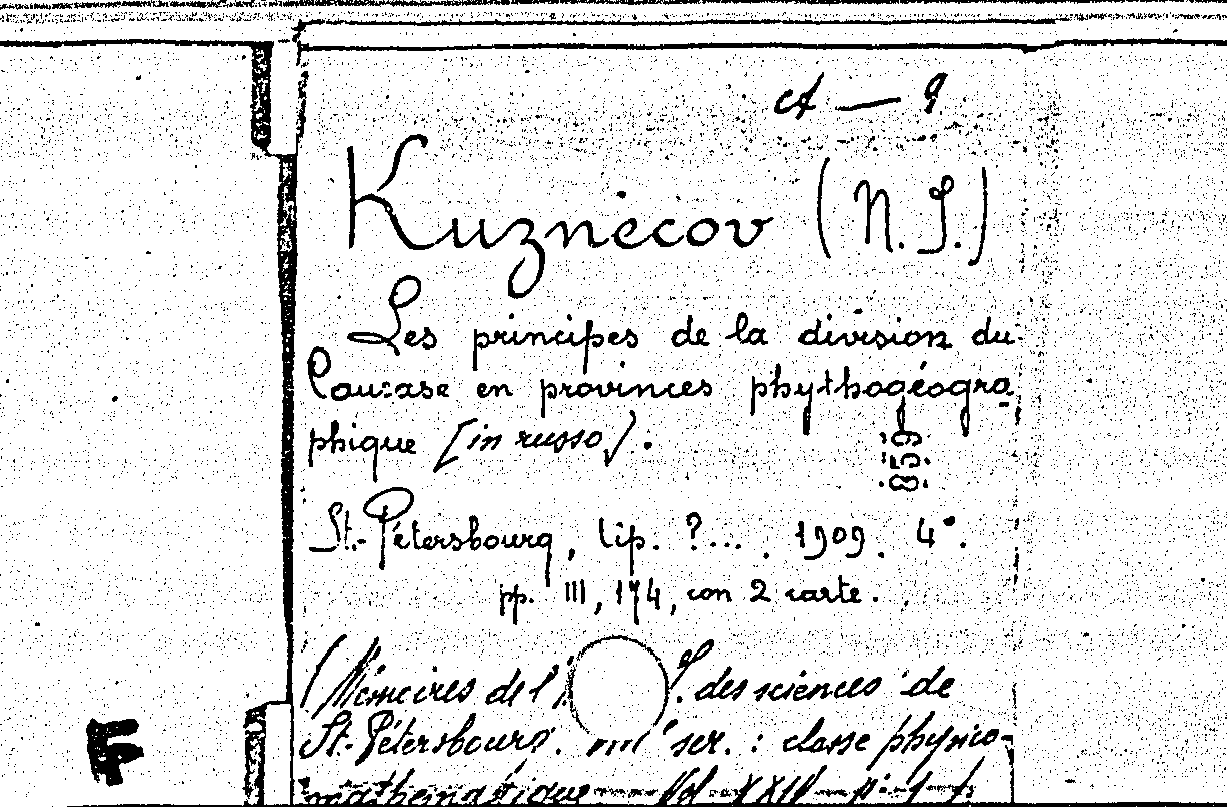 A — 9
Kuznecov (N. J.)
Les principes de la division du
Caucase en provinces phythogéogra-
phique [in russo].
859
St.-Pétersbourg, tip. ?... . 1909. 4°.
pp. III, 174, con 2 carte.
(Mémoires de l' des sciences de
St.-Pétersbourg. VIIIe ser. : classe physico-
mathématique Vol. XXIV
F